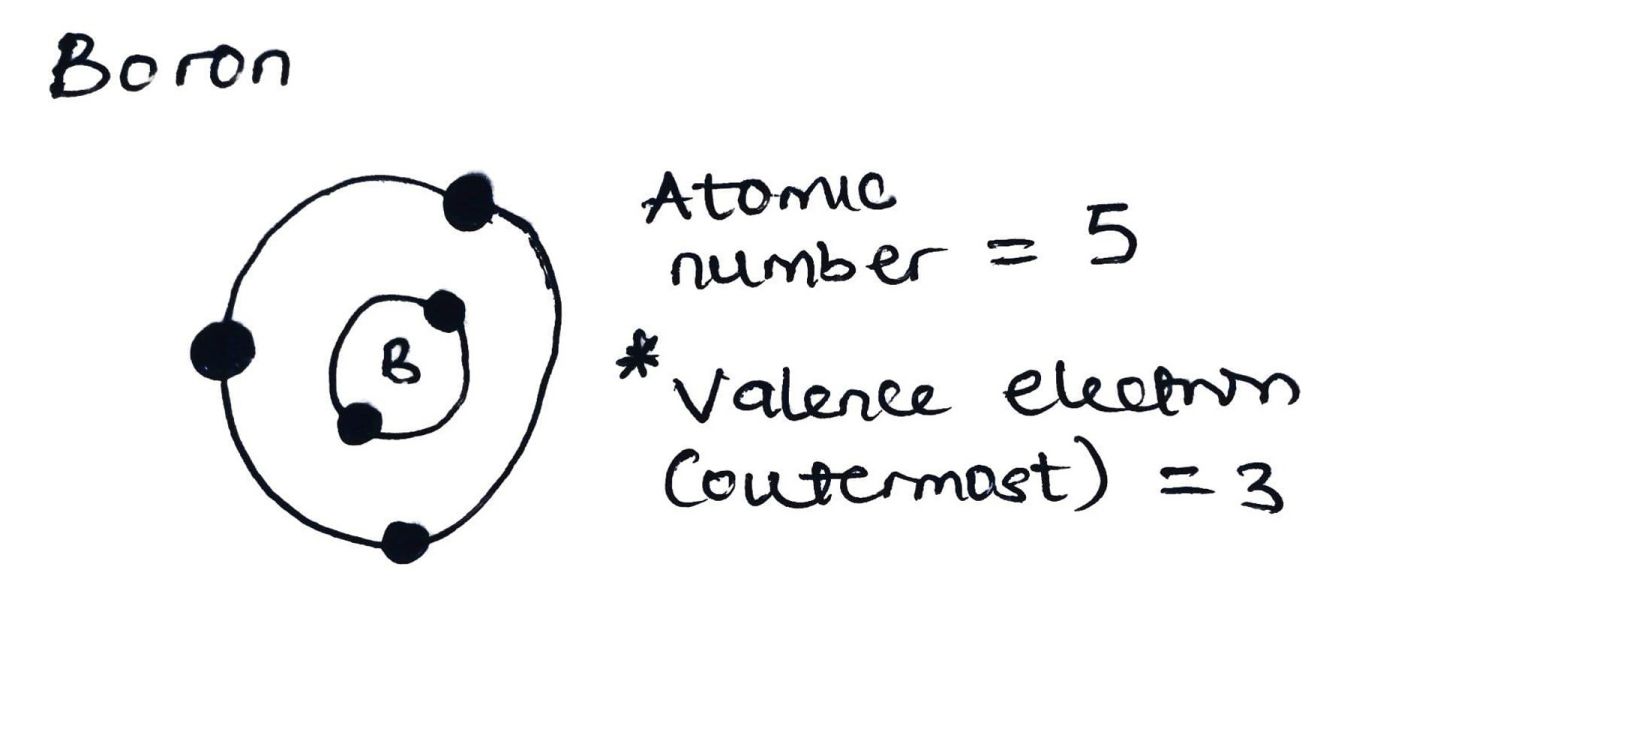 Boron
Atomic
number = 5
B
* Valence electron
(outermost) = 3